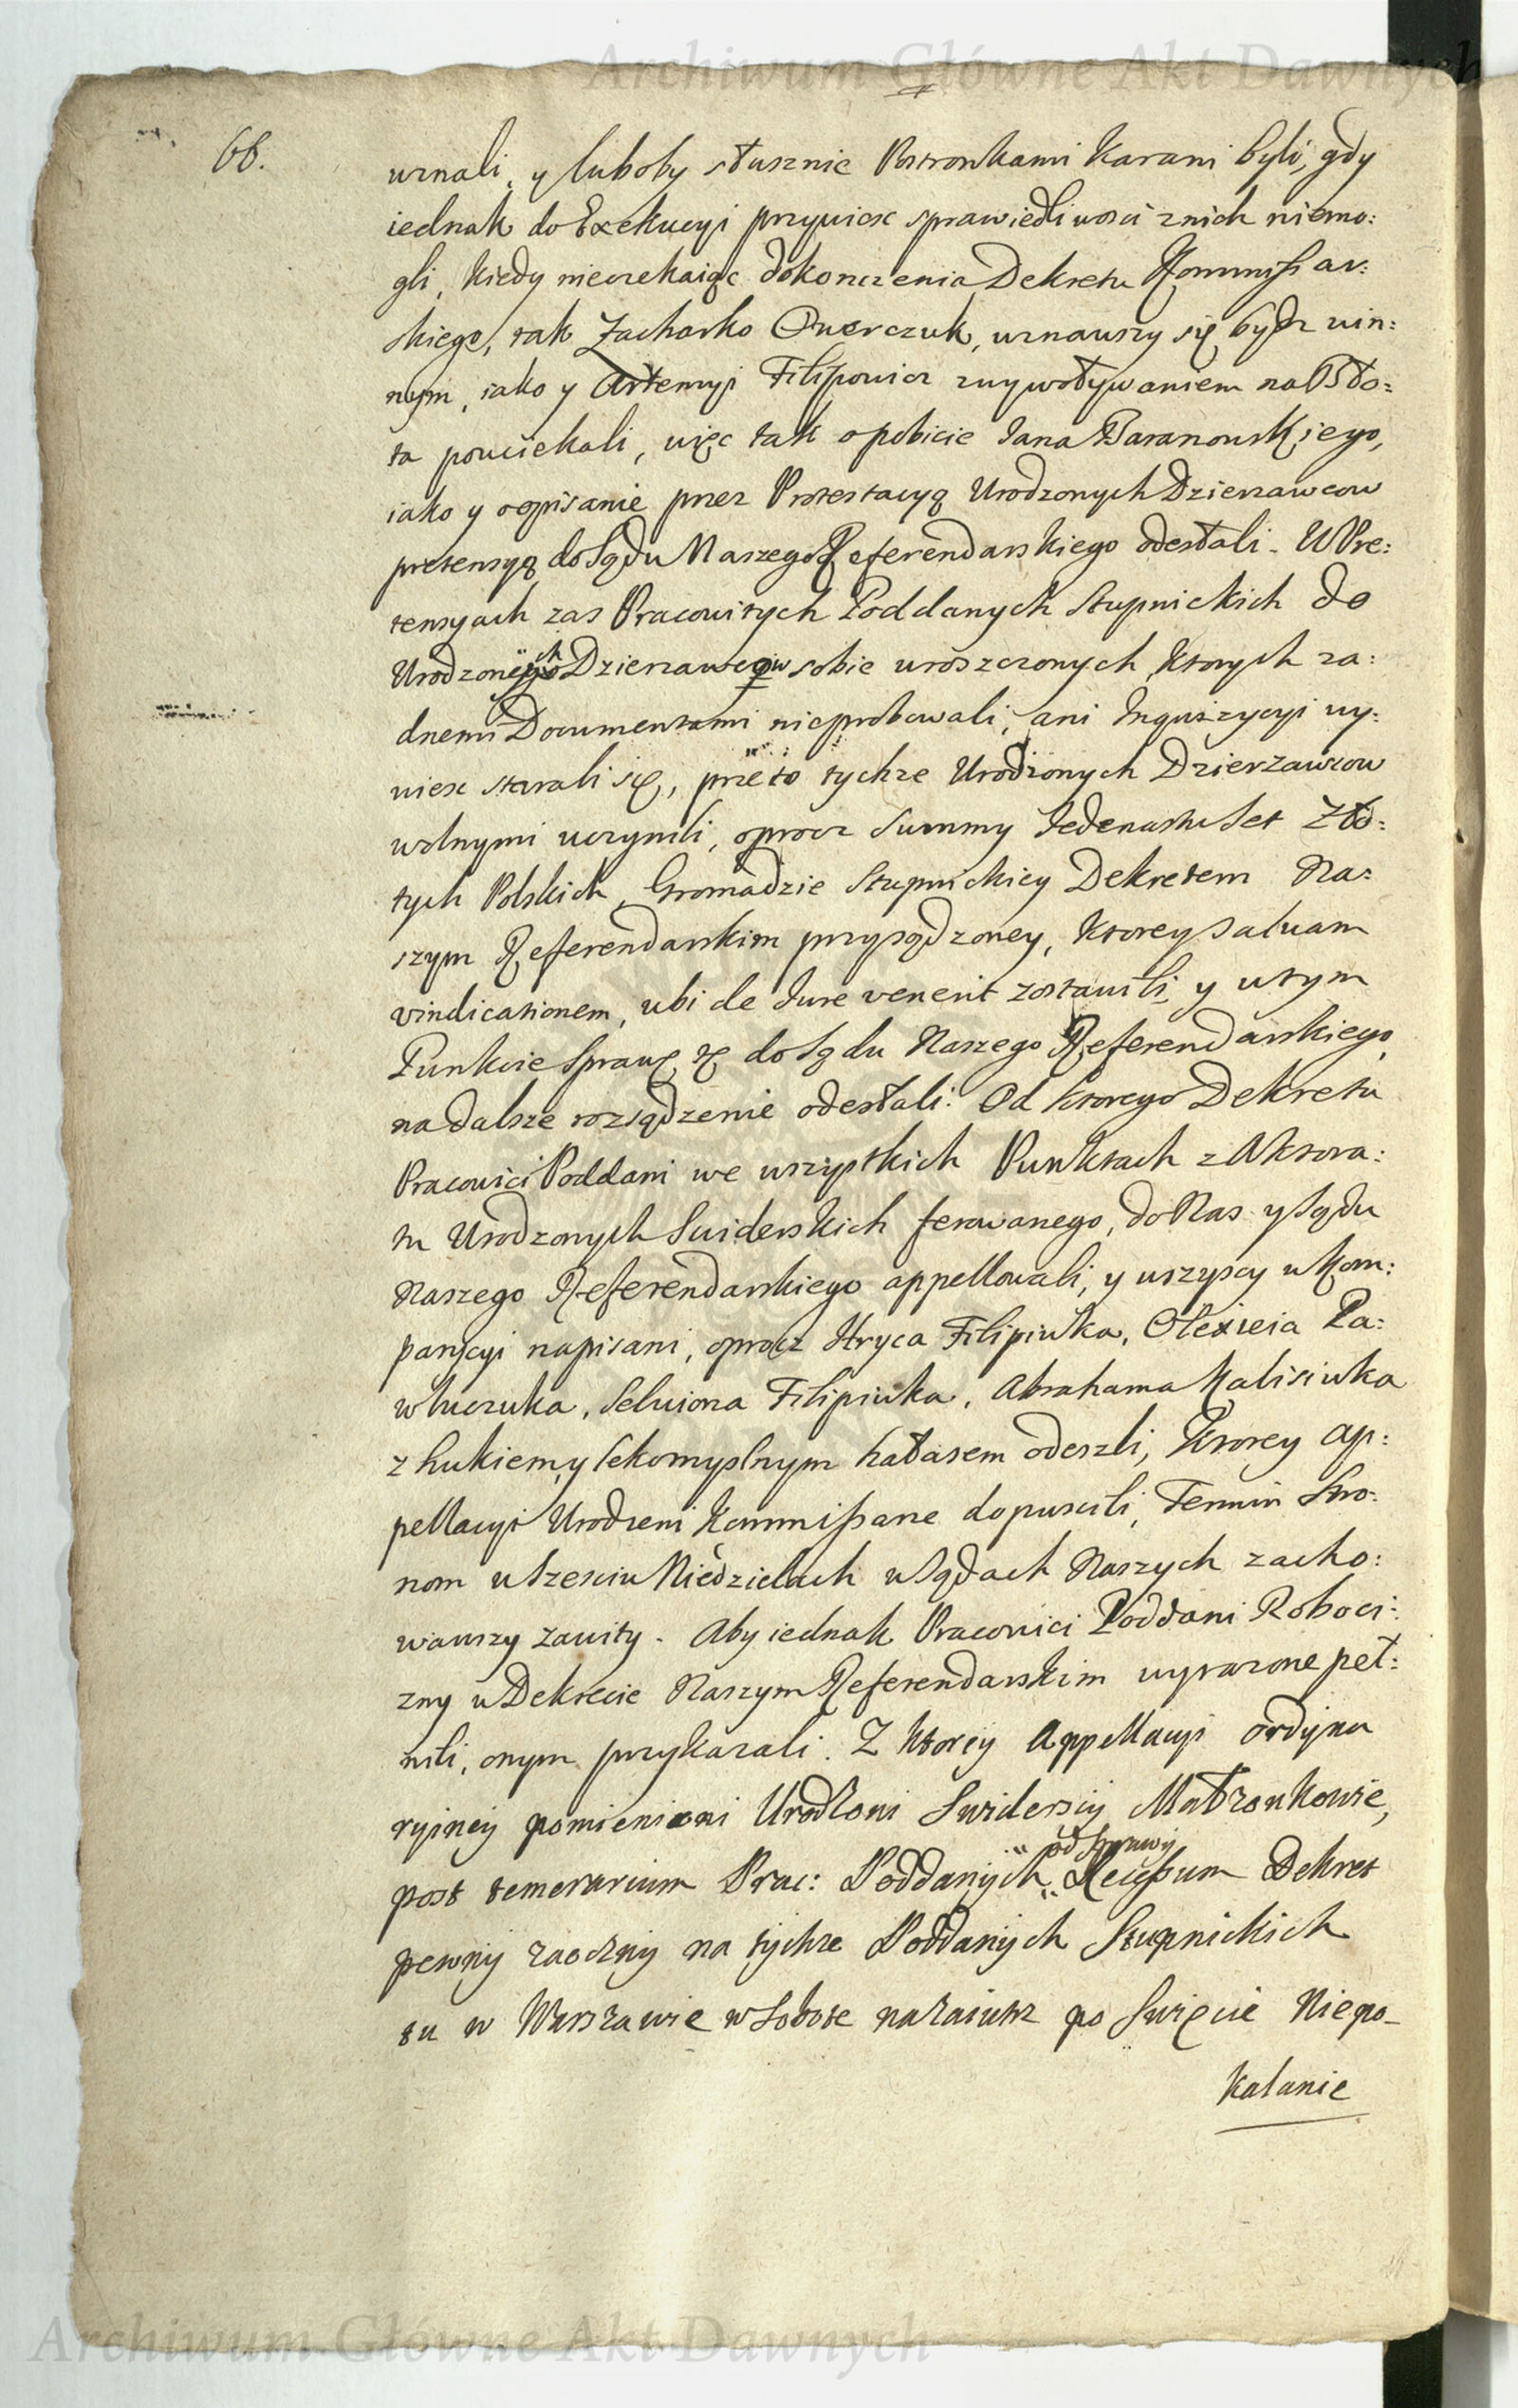 Archiwum Główne Akt Dawnych
66.
uznali, y luboby słusznie Postronkami karani byli, gdy
iednak do Exekucyi przywiesc sprawiedliwosci znich niemo:
gli, kiedy nieczekaiąc dokonczenia Dekretu Kommissar:
skiego, tak Zacharko Owerczuk, uznawszy się bydz win:
nym, iako y Artemyi Filipowicz zwywoływaniem na Bło:
ta pouciekali, więc tak o pobicie Jana Baranowskiego,
iako y oopisanie przez Protestacyą Urodzonych Dzierzawcow
pretensyą do Sądu Naszego Referendarskiego odesłali. W Pre:
tensyach zas Pracowitych Poddanych Stupnickich do
Urodzonych Dzierzawcow sobie uroszczonych, ktorych za:
dnemi Documentami nieprobowali, ani Inquizycyi wy:
wiesc starali się, przeto tychze Urodzonych Dzierzawcow
wolnymi uczynili, oprocz Summy Jedenastu Set Zło:
tych Polskich, Gromadzie Stupnickiey Dekretem Na:
szym Referendarskim przysądzoney, ktorey salvam
vindicationem, ubi de Jure venerit zostawili, y wtym
Punkcie Sprawę tę do Sądu Naszego Referendarskiego
na dalsze rozsądzenie odesłali. Od ktorego Dekretu
Pracowici Poddani we wszystkich Punktach z Aktora:
tu Urodzonych Swiderskich ferowanego, do Nas y Sądu
Naszego Referendarskiego appellowali, y wszyscy w Kom:
paricyi napisani, oprocz Hryca Filipiuka, Olexieia Pa:
wluczuka, Selwiona Filipiuka, Abrahama Kalisiuka
z hukiem, y lekomyslnym hałasem odeszli, ktorey ap:
pellacyi Urodzeni Kommissarze dopuscili, Termin Stro:
nom w Szesciu Niedzielach w Sądach Naszych zacho:
wawszy zawity. Aby iednak Pracowici Poddani Roboci:
zny w Dekrecie Naszym Referendarskim wyrazone peł:
nili, onym przykazali. Z ktorey Appellacyi ordyna
ryiney pomienieni Urodzoni Swiderscy Małzonkowie,
post temerarium Prac: Poddanych od Sprawy Recessum Dekret
pewny zaoczny na tychze Poddanych Stupnickich
tu w Warszawie w Sobote nazaiutrz po Swięcie Niepo_
kalanie
Archiwum Główne Akt Dawnych